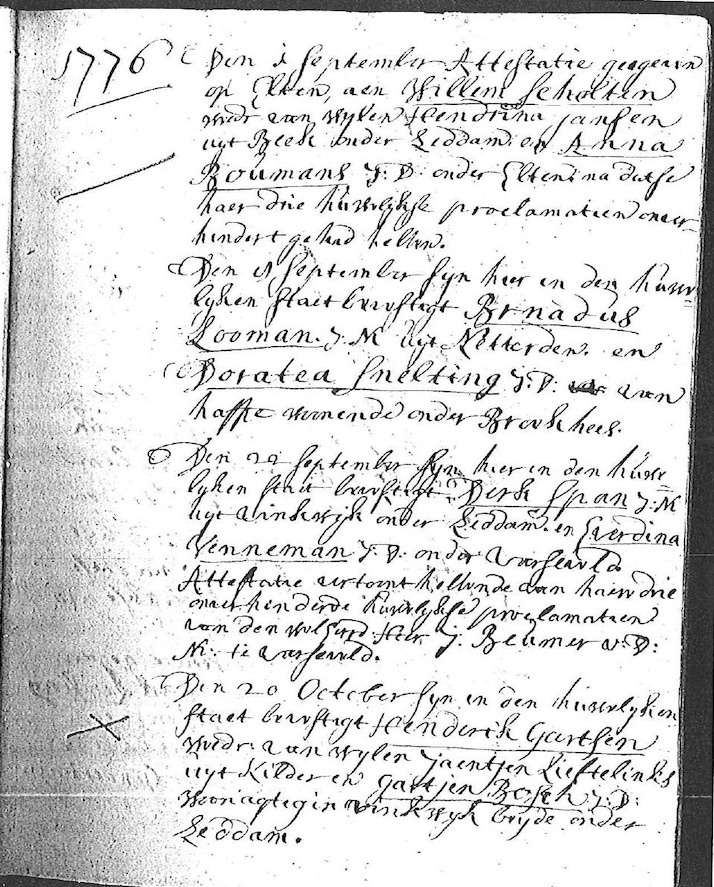 1776
Den 1 September Attestatie gegeven
op Elten, aen Willem Scholten
wedr van wylen Hendrina Jansen
uyt Beek onder Leddam: en Anna
Boumans J: D: onder Elten na datse
haer drie huwelykse proclamatien onver
hindert gehad hebben.
Den 8 September syn hier in den huwe
lyken staet bevestigt Brnadus
Looman. J: M uyt Netterden. en
Doratea Snelting J: D: van
haffte woonende onder Broekhees.
Den 22 September syn hier in den huwe
lyken staet bevestigt Derk Span J: M
uyt vinkwijk onder Leddam. en Everdina
Venneman J. D. onder varseveld
Attestatie vertoont hebbende van haer drie
onverhinderde huwelykse proclamatien
van den wolEerd: Heer J. Beumer v: D:
M: te varseveld.
Den 20 October syn in den huwelyken
staet bevestigt Henderik Gartsen
wedr: van wylen Jaentjen Lieftelinks
uyt Kilder en Gartjen Bosch J: D:
woonagtig in vinkwyk beyde onder
Leddam.